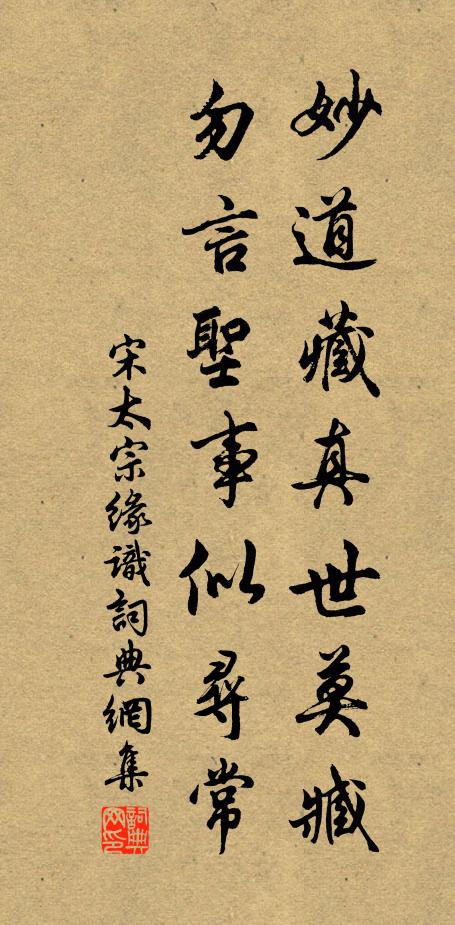 妙道藏真世莫臧
勿言聖事似尋常
宋太宗緣識詞典網集
詞典网印